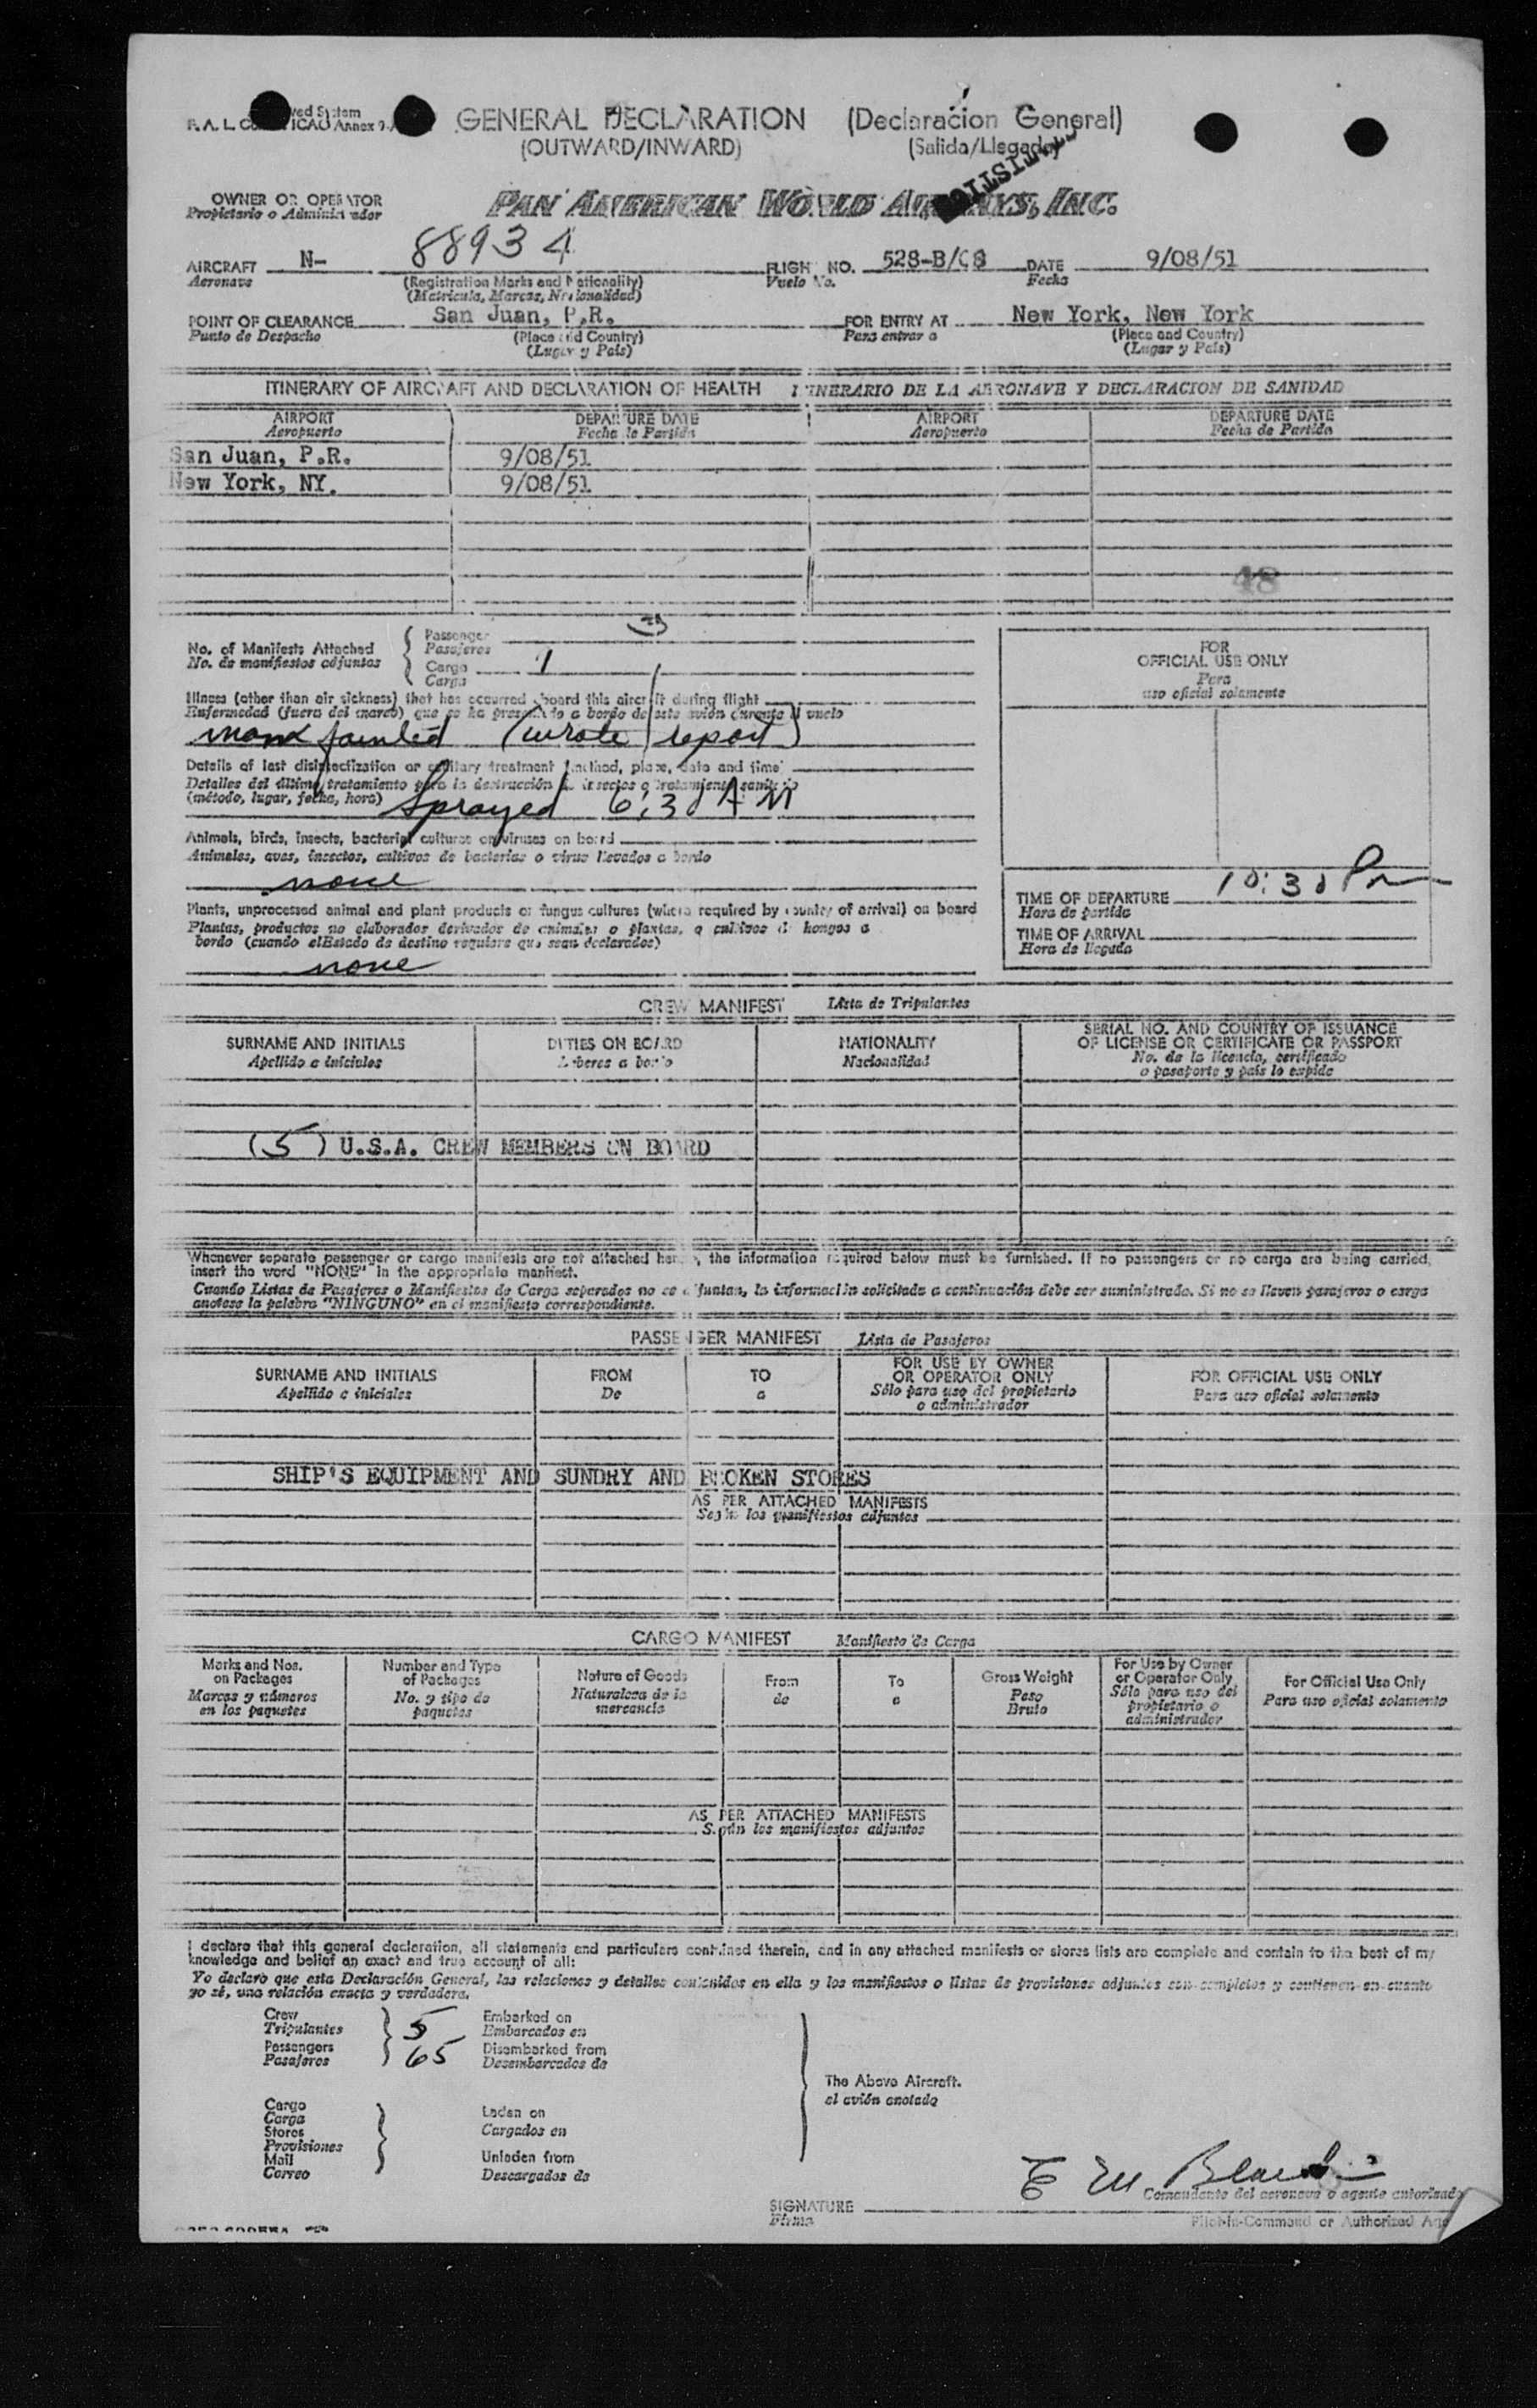 GENERAL DECLARATION (Declaracion General)
(OUTWARD/INWARD) (Salida/Llegada)
OWNER OR OPERATOR
Propietario o Administrador
PAN AMERICAN WORLD AIRWAYS, INC.
AIRCRAFT N- 88934 FLIGHT NO. 528-B/08 DATE 9/08/51
Aeronave (Registration Marks and Nationality) Vuelo No. Fecha
(Matricula, Marcas, Nacionalidad)
POINT OF CLEARANCE San Juan, P.R. FOR ENTRY AT New York, New York
Punto de Despacho (Place and Country) Para entrar a (Place and Country)
(Lugar y País) (Lugar y País)
ITINERARY OF AIRCRAFT AND DECLARATION OF HEALTH ITINERARIO DE LA AERONAVE Y DECLARACION DE SANIDAD
AIRPORT DEPARTURE DATE AIRPORT DEPARTURE DATE
Aeropuerto Fecha de Partida Aeropuerto Fecha de Partida
San Juan, P.R. 9/08/51
New York, NY. 9/08/51
48
No. of Manifests Attached
No. de manifiestos adjuntos
Passenger 3
Pasajeros
Cargo 1
Carga
Illness (other than air sickness) that has occurred aboard this aircraft during flight
Enfermedad (fuera del mareo) que se ha presentado a bordo de este avión durante el vuelo
fainted (wrote report)
Details of last disinsectization or sanitary treatment (method, place, date and time)
Detalles del último tratamiento para la destrucción de insectos o tratamiento sanitario
(método, lugar, fecha, hora) Sprayed 6:30 AM
Animals, birds, insects, bacterial cultures or viruses on board
Animales, aves, insectos, cultivos de bacterias o virus llevados a bordo
none
Plants, unprocessed animal and plant products or fungus cultures (where required by country of arrival) on board
Plantas, productos no elaborados derivados de animales o plantas, o cultivos de hongos a
bordo (cuando el Estado de destino requiere que sean declarados)
none
FOR
OFFICIAL USE ONLY
Para
uso oficial solamente
TIME OF DEPARTURE 10:30 Pm
Hora de partida
TIME OF ARRIVAL
Hora de llegada
CREW MANIFEST Lista de Tripulantes
SURNAME AND INITIALS DUTIES ON BOARD NATIONALITY SERIAL NO. AND COUNTRY OF ISSUANCE
Apellido e iniciales Deberes a bordo Nacionalidad OF LICENSE OR CERTIFICATE OR PASSPORT
No. de la licencia, certificado
o pasaporte y país lo expide
(5) U.S.A. CREW MEMBERS ON BOARD
Whenever separate passenger or cargo manifests are not attached hereto, the information required below must be furnished. If no passengers or no cargo are being carried,
insert the word "NONE" in the appropriate manifest.
Cuando Listas de Pasajeros o Manifiestos de Carga separados no se adjuntan, la información solicitada a continuación debe ser suministrada. Si no se llevan pasajeros o carga
anotese la palabra "NINGUNO" en el manifiesto correspondiente.
PASSENGER MANIFEST Lista de Pasajeros
SURNAME AND INITIALS FROM TO FOR USE BY OWNER FOR OFFICIAL USE ONLY
Apellido e iniciales De a OR OPERATOR ONLY Para uso oficial solamente
Sólo para uso del propietario
o administrador
SHIP'S EQUIPMENT AND SUNDRY AND BROKEN STORES
AS PER ATTACHED MANIFESTS
Según los manifiestos adjuntos
CARGO MANIFEST Manifiesto de Carga
Marks and Nos. on Packages Number and Type of Packages Nature of Goods From To Gross Weight For Use by Owner or Operator Only For Official Use Only
Marcas y números en los paquetes No. y tipo de paquetes Naturaleza de la mercancía de a Peso Bruto Sólo para uso del propietario o administrador Para uso oficial solamente
AS PER ATTACHED MANIFESTS
Según los manifiestos adjuntos
I declare that this general declaration, all statements and particulars contained therein, and in any attached manifests or stores lists are complete and contain to the best of my
knowledge and belief an exact and true account of all:
Yo declaro que esta Declaración General, las relaciones y detalles contenidos en ella y los manifiestos o listas de provisiones adjuntos son completos y contienen en cuanto
yo sé, una relación exacta y verdadera.
Crew 5 Embarked on
Tripulantes Embarcados en
Passengers 65 Disembarked from
Pasajeros Desembarcados de
The Above Aircraft.
el avión anotado
Cargo
Carga Laden on
Stores Cargados en
Provisiones
Mail Unladen from
Correo Descargados de
SIGNATURE
Firma
Comandante del aeronave o agente autorizado
Pilot-in-Command or Authorized Age